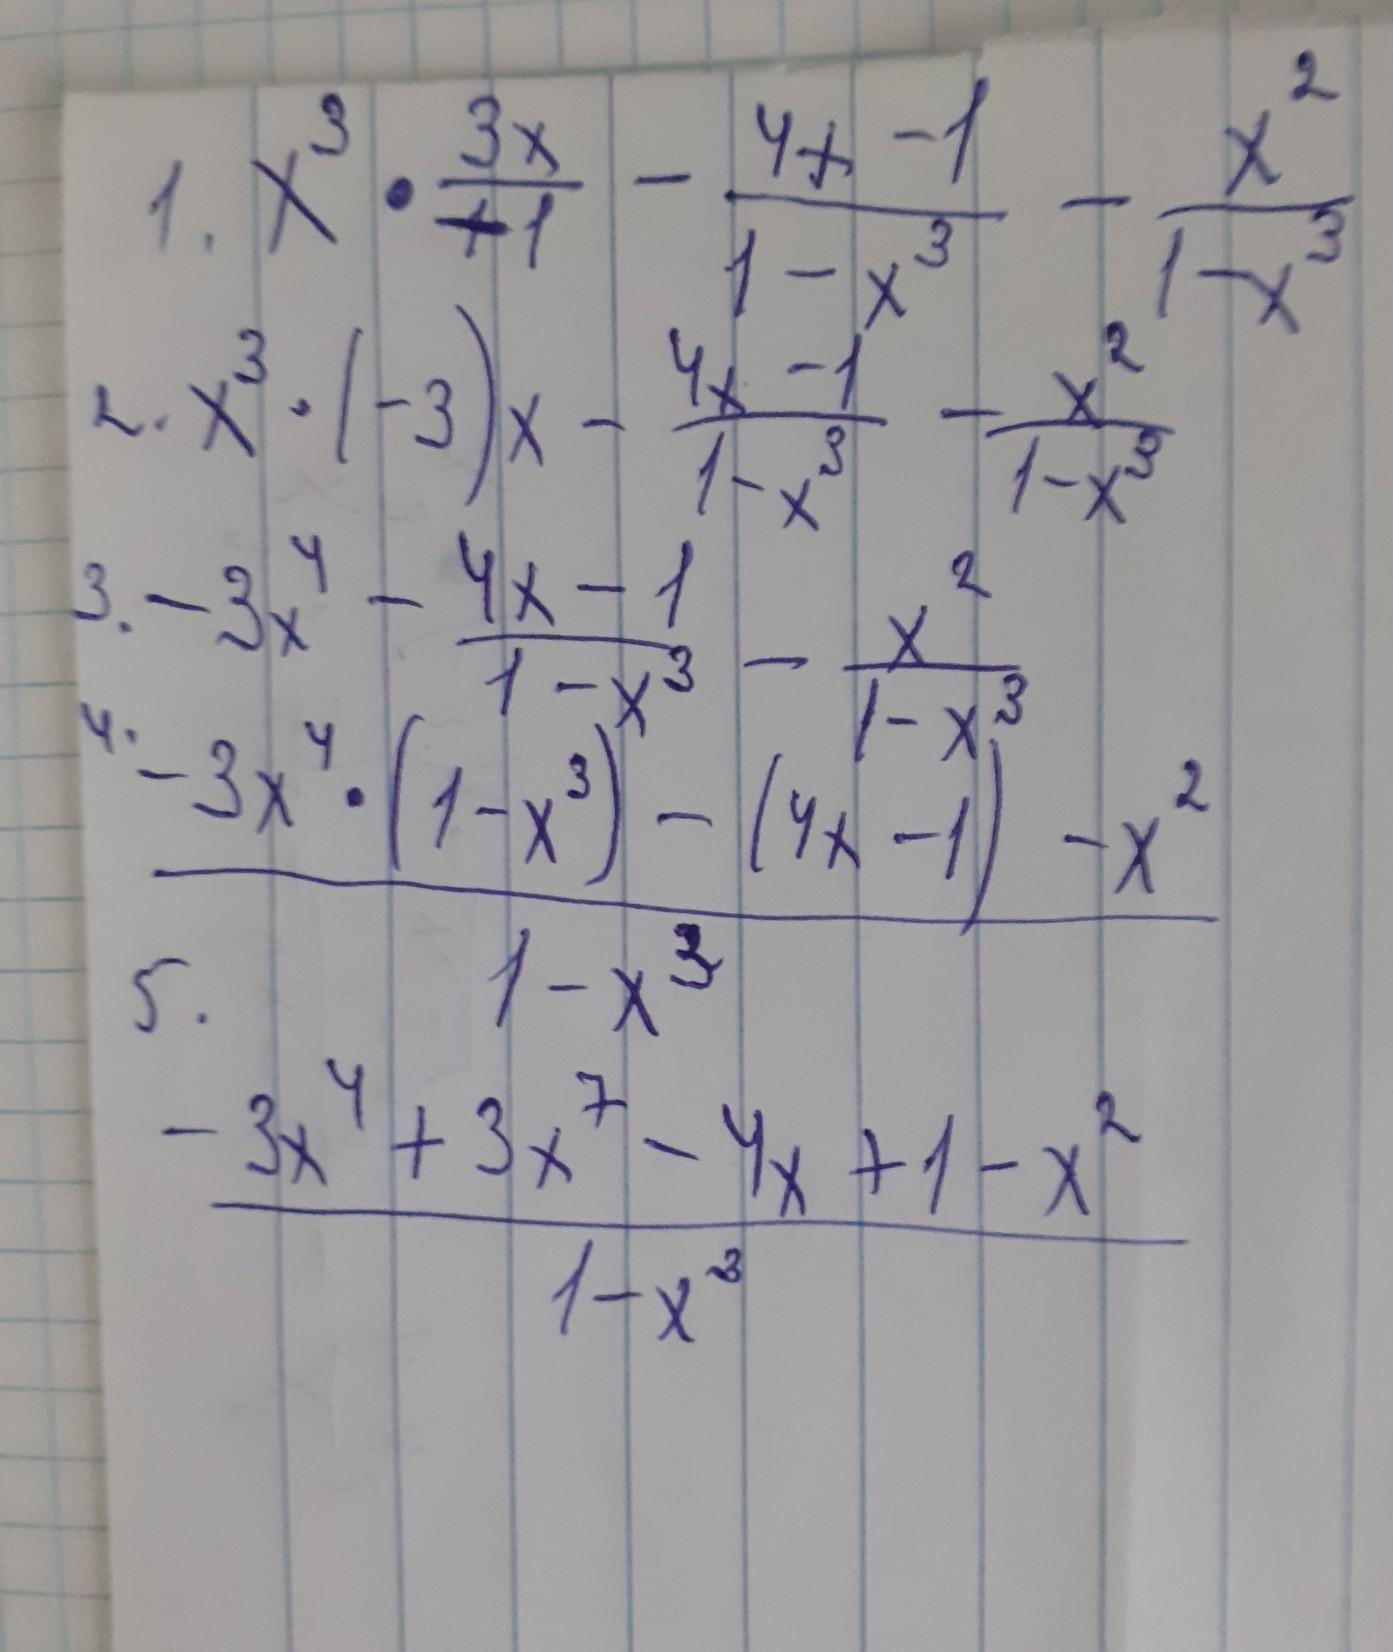 1. x³ • 3x/+1 - 4x-1/1-x³ - x²/1-x³
2. x³ · (-3)x - 4x-1/1-x³ - x²/1-x³
3. -3x⁴ - 4x-1/1-x³ - x²/1-x³
4. -3x⁴ • (1-x³) - (4x-1) - x²
1-x³
5.
-3x⁴ + 3x⁷ - 4x + 1 - x²
1-x³